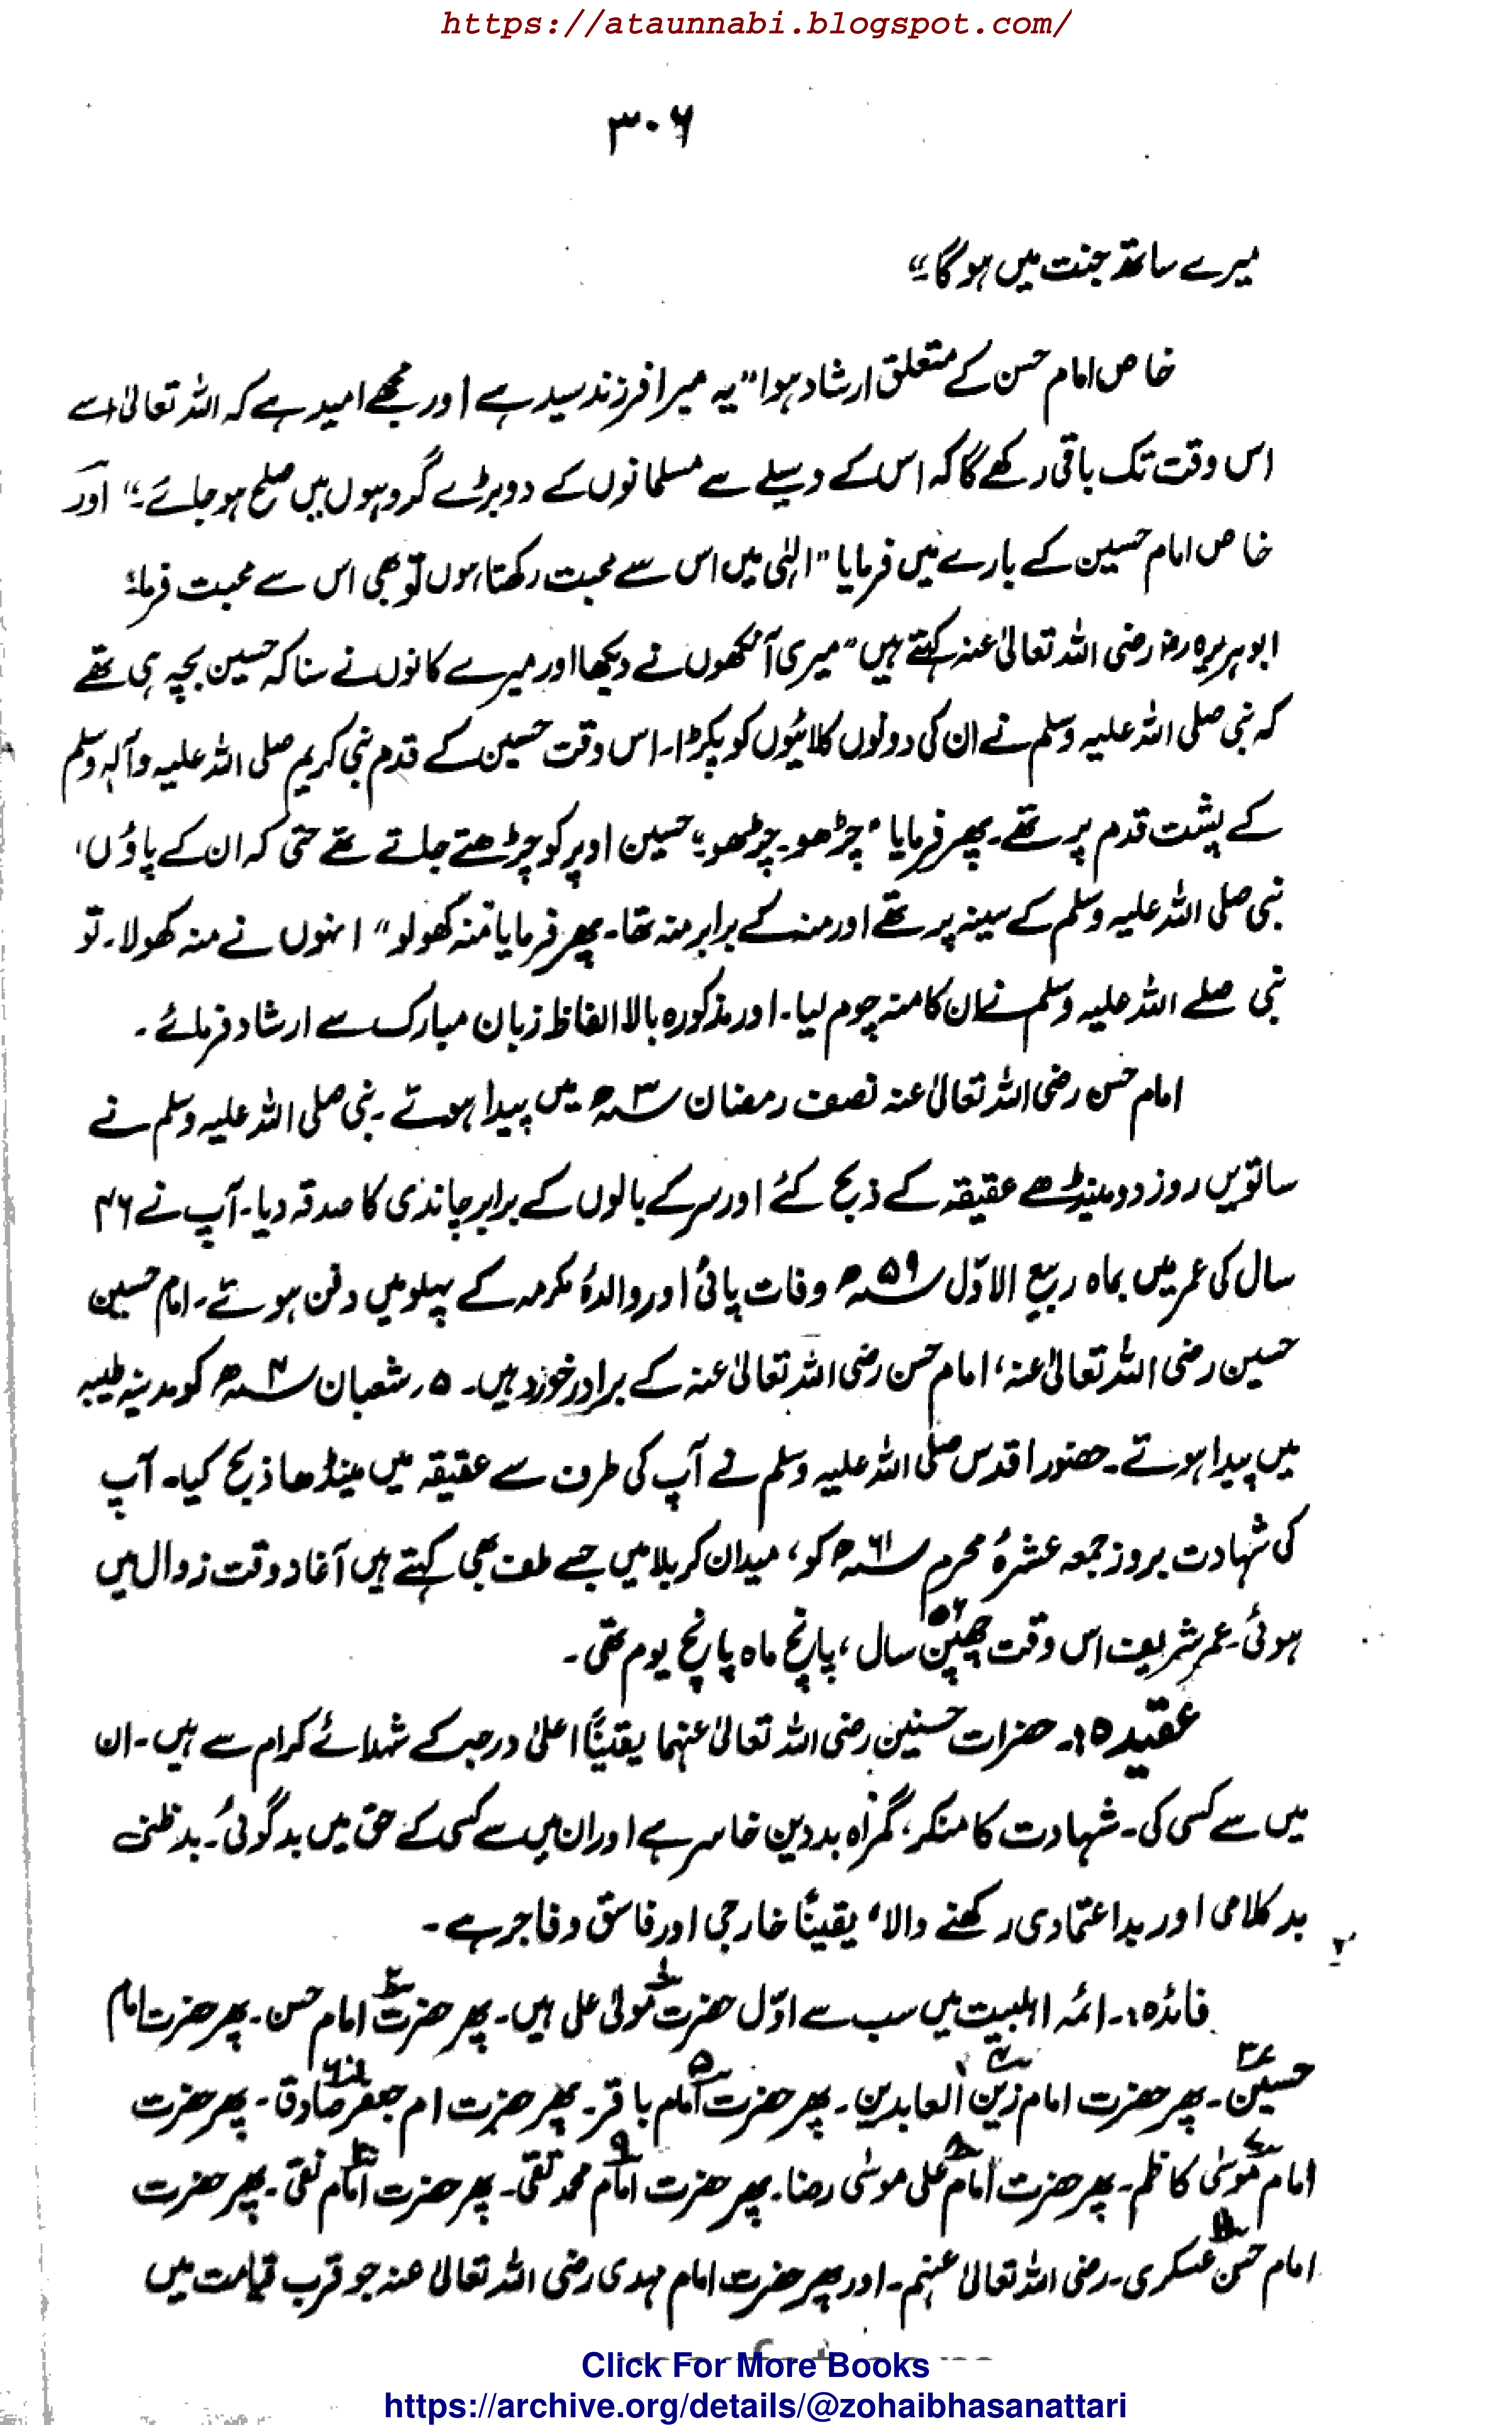 https://ataunnabi.blogspot.com/
۳۰۶
میرے ساتھ جنت میں ہوگا۔“
خاص امام حسن کے متعلق ارشاد ہوا ”یہ میرا فرزند سید ہے اور مجھے امید ہے کہ اللہ تعالیٰ اسے
اس وقت تک باقی رکھے گا کہ اس کے وسیلے سے مسلمانوں کے دو بڑے گروہوں میں صلح ہو جائے۔“ اور
خاص امام حسین کے بارے میں فرمایا ”الٰہی میں اس سے محبت رکھتا ہوں تو بھی اس سے محبت فرما“
ابوہریرہ رضؓ رضی اللہ تعالیٰ عنہ کہتے ہیں ”میری آنکھوں نے دیکھا اور میرے کانوں نے سنا کہ حسین بچہ ہی تھے
کہ نبی صلی اللہ علیہ وسلم نے ان کی دونوں کلائیوں کو پکڑا۔ اس وقت حسین کے قدم نبی کریم صلی اللہ علیہ وآلہٖ وسلم
کے پشت قدم پر تھے۔ پھر فرمایا ”چڑھو۔ چڑھو۔“ حسین اوپر کو چڑھتے جاتے تھے حتیٰ کہ ان کے پاؤں،
نبی صلی اللہ علیہ وسلم کے سینہ پر تھے اور منہ کے برابر منہ تھا۔ پھر فرمایا ”منہ کھولو“ انہوں نے منہ کھولا۔ تو
نبی صلے اللہ علیہ وسلم نے ان کا منہ چوم لیا۔ اور مذکورہ بالا الفاظ زبان مبارک سے ارشاد فرمائے۔
امام حسن رضی اللہ تعالیٰ عنہ نصف رمضان ۳ھ میں پیدا ہوئے۔ نبی صلی اللہ علیہ وسلم نے
ساتویں روز دو مینڈھے عقیقہ کے ذبح کئے اور سر کے بالوں کے برابر چاندی کا صدقہ دیا۔ آپ نے ۴۶
سال کی عمر میں بماہ ربیع الاوّل ۵۹ھ وفات پائی اور والدۂ مکرمہ کے پہلو میں دفن ہوئے۔ امام حسین
حسین رضی اللہ تعالیٰ عنہ، امام حسن رضی اللہ تعالیٰ عنہ کے برادر خورد ہیں۔ ۵ر شعبان ۴ھ کو مدینہ طیبہ
میں پیدا ہوئے۔ حضور اقدس صلی اللہ علیہ وسلم نے آپ کی طرف سے عقیقہ میں مینڈھا ذبح کیا۔ آپ
کی شہادت بروز جمعہ عشرۂ محرم ۶۱ھ کو، میدان کربلا میں جسے طف بھی کہتے ہیں آغاز وقت زوال میں
ہوئی۔ عمر شریف اس وقت چھپن ۵۶ سال، پانچ ماہ پانچ یوم تھی۔
عقیدہ:۔ حضرات حسنین رضی اللہ تعالیٰ عنہما یقیناً اعلیٰ درجہ کے شہدائے کرام سے ہیں۔ ان
میں سے کسی کی۔ شہادت کا منکر، گمراہ بددین خاسر ہے اور ان میں سے کسی کے حق میں بدگوئی۔ بدظنی
بدکلامی اور بداعتمادی رکھنے والا، یقیناً خارجی اور فاسق و فاجر ہے۔
فائدہ:۔ ائمہ اہلبیت میں سب سے اوّل حضرت ۱ مولیٰ علی ہیں۔ پھر حضرت ۲ امام حسن۔ پھر حضرت امام
حسین ۳۔ پھر حضرت امام زین ۴ العابدین۔ پھر حضرت ۵ امام باقر۔ پھر حضرت ام جعفر ۶ صادق۔ پھر حضرت
امام موسیٰ ۷ کاظم۔ پھر حضرت امام ۸ علی موسیٰ رضا۔ پھر حضرت امام ۹ محمد تقی۔ پھر حضرت امام ۱۰ نقی۔ پھر حضرت
امام حسن ۱۱ عسکری۔ رضی اللہ تعالیٰ عنہم۔ اور پھر حضرت امام مہدی رضی اللہ تعالیٰ عنہ جو قرب قیامت میں
Click For More Books
https://archive.org/details/@zohaibhasanattari